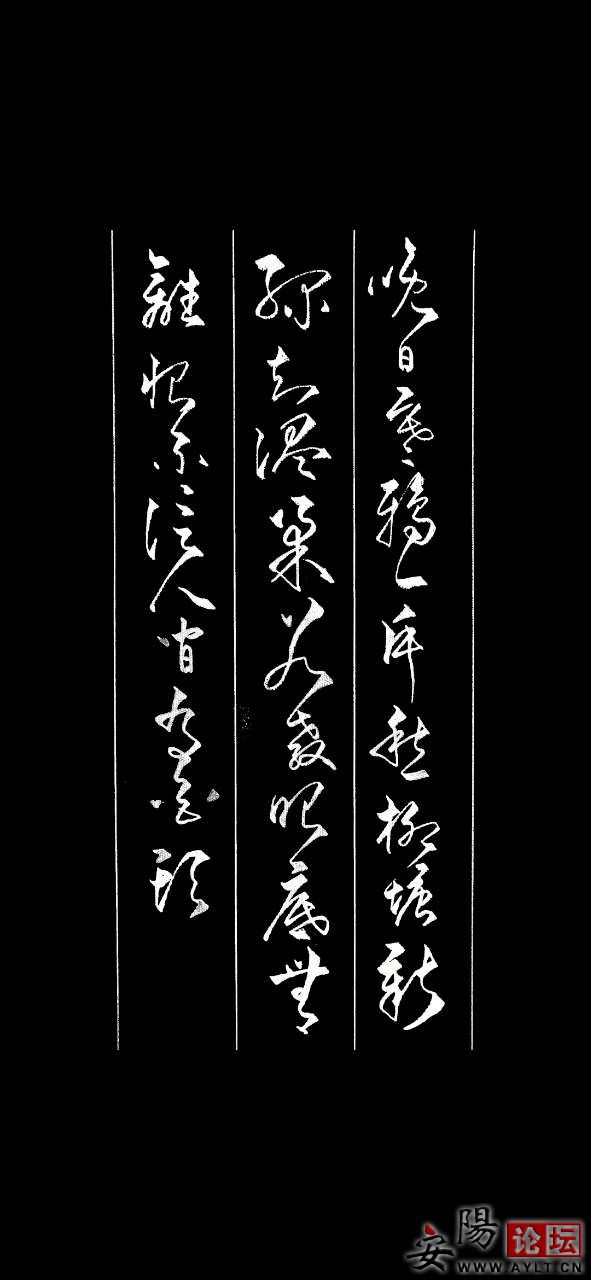 晚日寒鴉一片愁柳塘新
綠却溫柔若教眼底無
離恨不信人間有白頭
安陽论坛
WWW.AYLT.CN